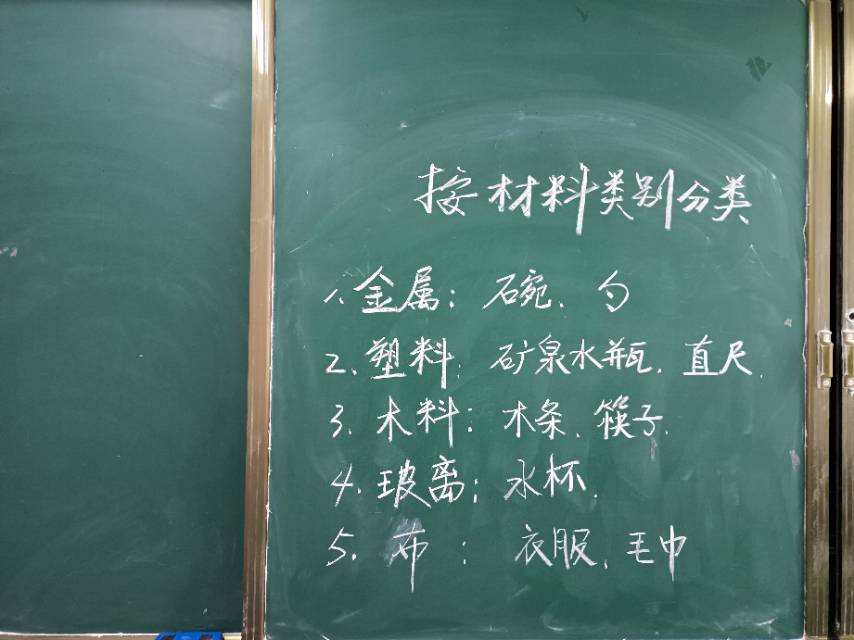 按材料类别分类
1、金属：碗、勺
2、塑料：矿泉水瓶、直尺.
3、木料：木条、筷子.
4、玻离：水杯.
5、布：衣服、毛巾